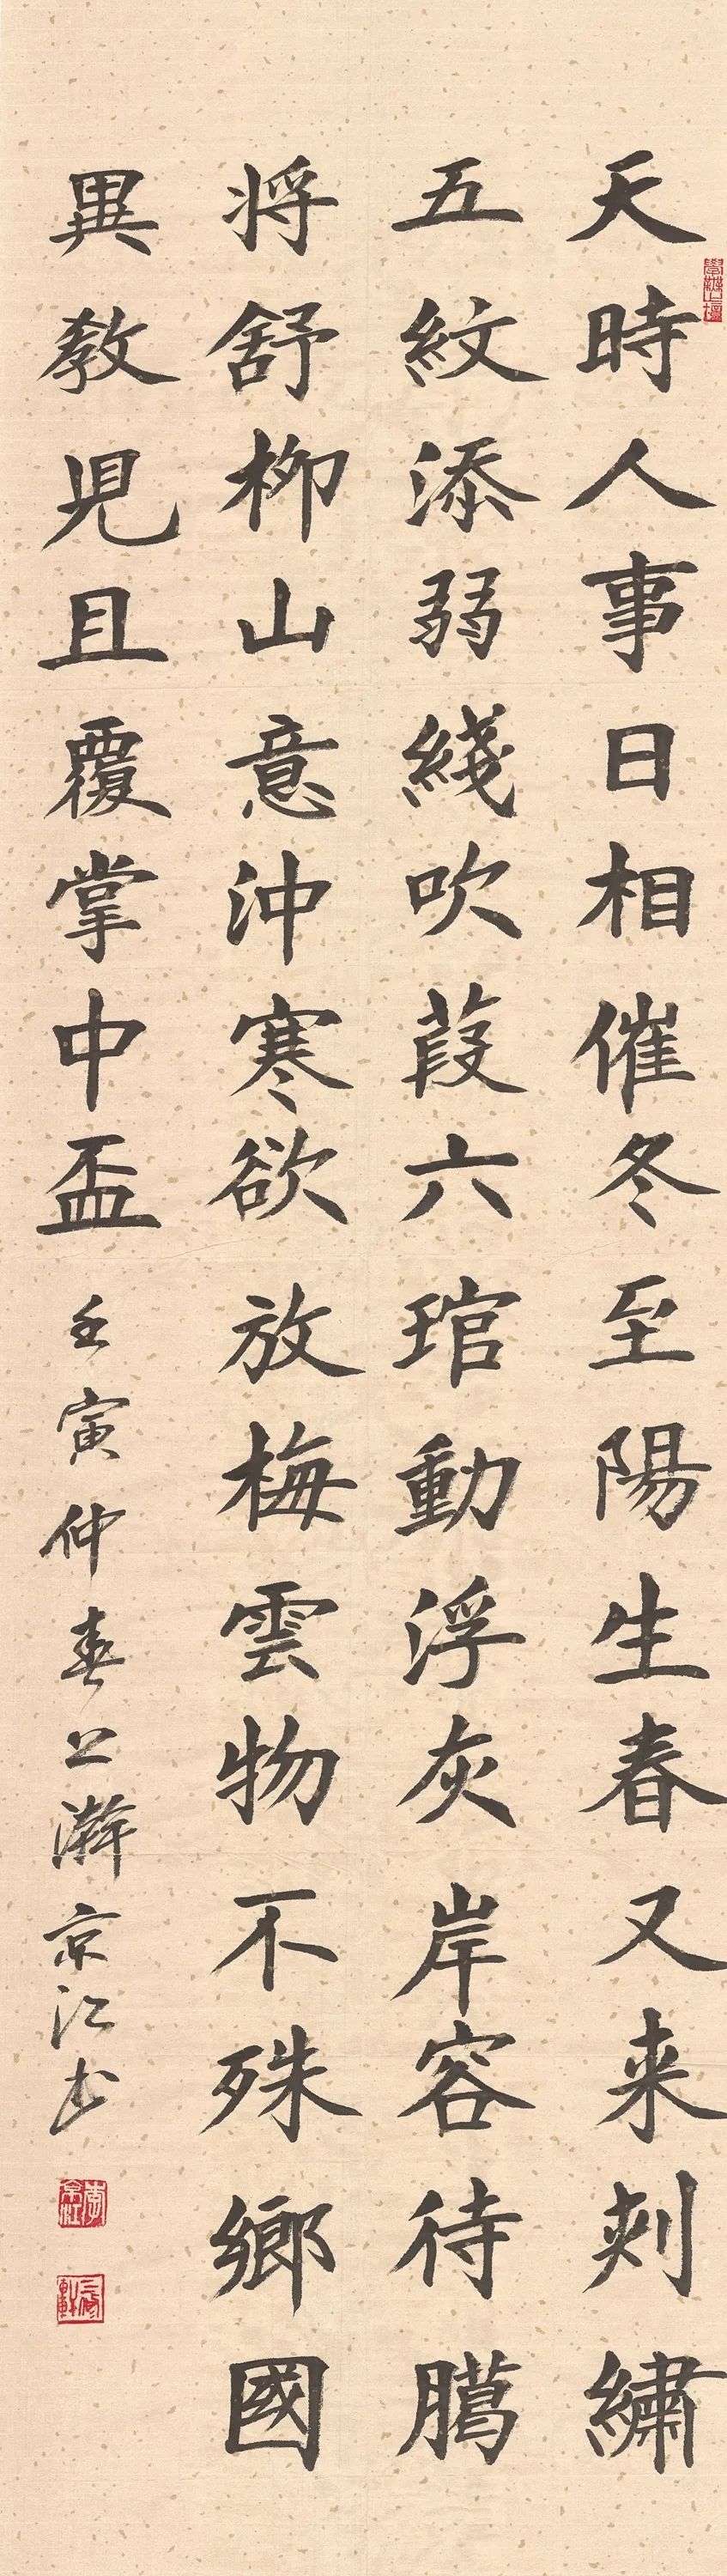 天時人事日相催冬至陽生春又来刾繡
五紋添弱綫吹葭六琯動浮灰岸容待臈
将舒柳山意沖寒欲放梅雲物不殊鄉國
異教児且覆掌中盃
壬寅仲春 瀚京江书